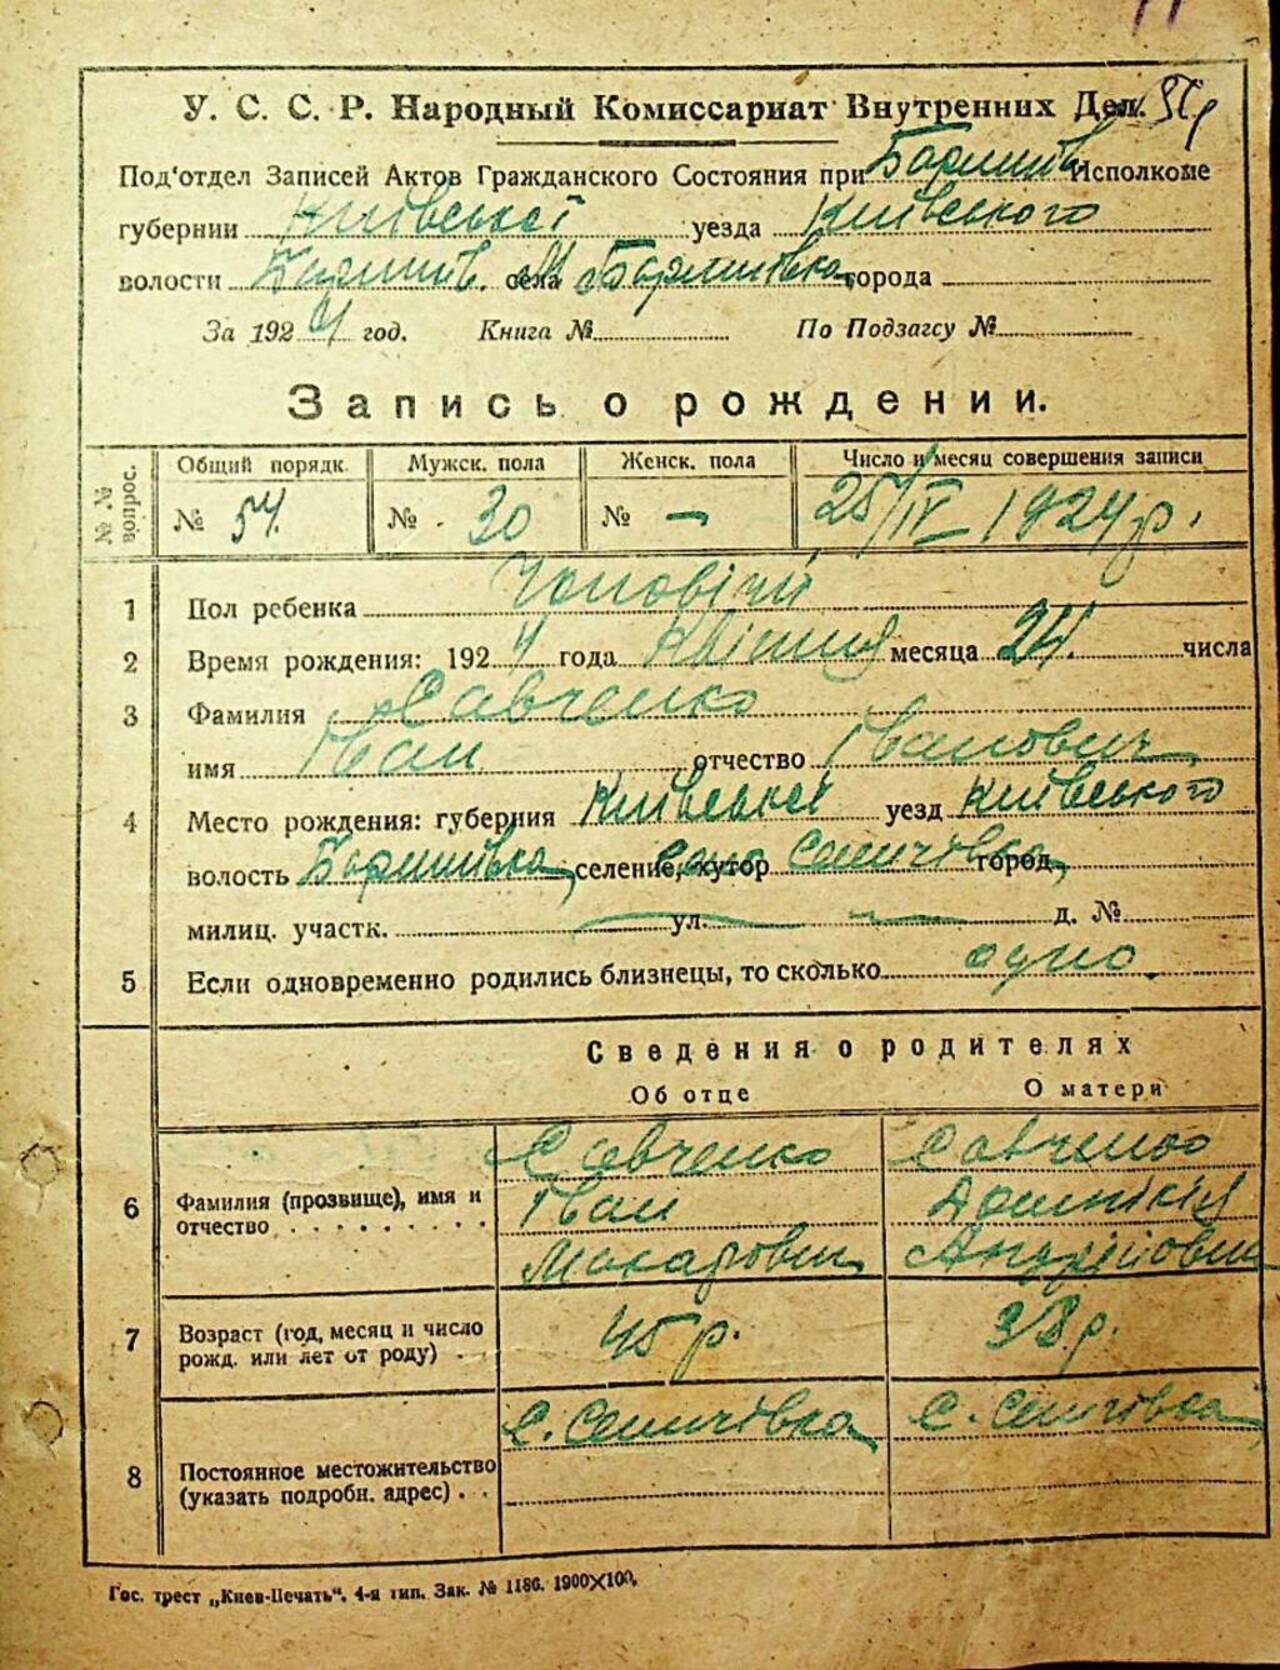 У. С. С. Р. Народный Комиссариат Внутренних Дел.
Под'отдел Записей Актов Гражданского Состояния при Баришів Исполкоме
губернии Київської уезда Київського
волости Баришів. села М Баришівка города
За 1924 год. Книга № По Подзагсу №
Запись о рождении.
№ № вопрос.
Общий порядк. Мужск. пола Женск. пола Число и месяц совершения записи
№ 54. № 30 № — 25/IV 1924 р.
1 Пол ребенка Чоловічий
2 Время рождения: 1924 года Квітня месяца 24. числа
3 Фамилия Савченко
имя Іван отчество Іванович
4 Место рождения: губерния Київської уезд Київського
волость Баришівка селение, хутор Село Сеничівка город
милиц. участк. ул. д. №
5 Если одновременно родились близнецы, то сколько одно.
Сведения о родителях
Об отце О матери
6 Фамилия (прозвище), имя и отчество
Савченко Савченко
Іван
Макарович
7 Возраст (год, месяц и число рожд. или лет от роду) 45 р. 38 р.
8 Постоянное местожительство (указать подробн. адрес) С. Сеничівка С. Сеничівка
Гос. трест „Киев-Печать“. 4-я тип. Зак. № 1186. 1900×100.